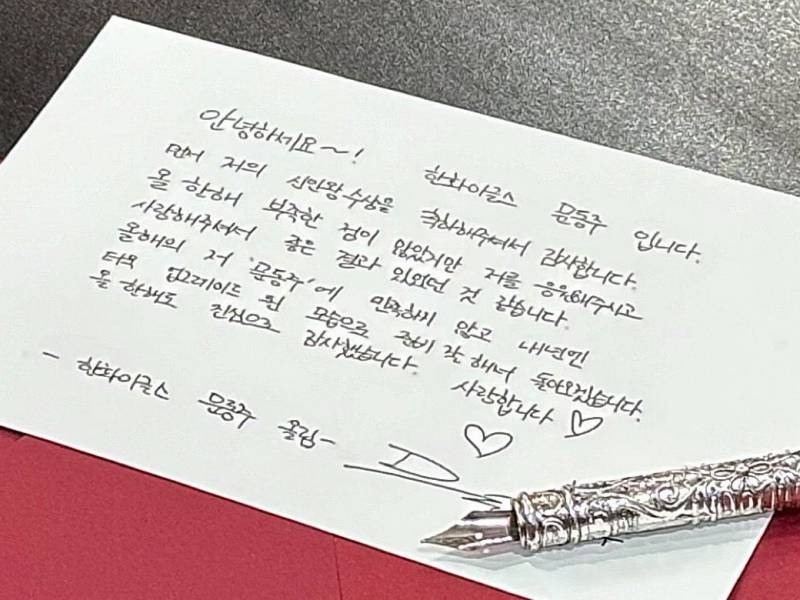 안녕하세요~! 한화이글스 문동주 입니다.
먼저 저의 신인왕 수상을 축하해주셔서 감사합니다.
올 한해 부족한 점이 많았지만 저를 응원해주시고
사랑해주셔서 좋은 결과 있었던 것 같습니다.
올해의 저 '문동주'에 만족하지 않고 내년엔
더욱 업그레이드 된 모습으로 준비 잘 해서 돌아오겠습니다.
올 한해도 진심으로 감사했습니다. 사랑합니다 ♡
♡
- 한화이글스 문동주 올림-